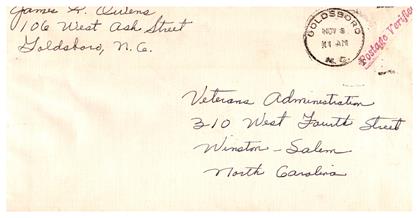 James R. Owens
106 West Ash Street
Goldsboro, N.C.
GOLDSBORO
NOV 8
11 AM
N.C.
Postage Verified
Veterans Administration
310 West Fourth Street
Winston-Salem
North Carolina